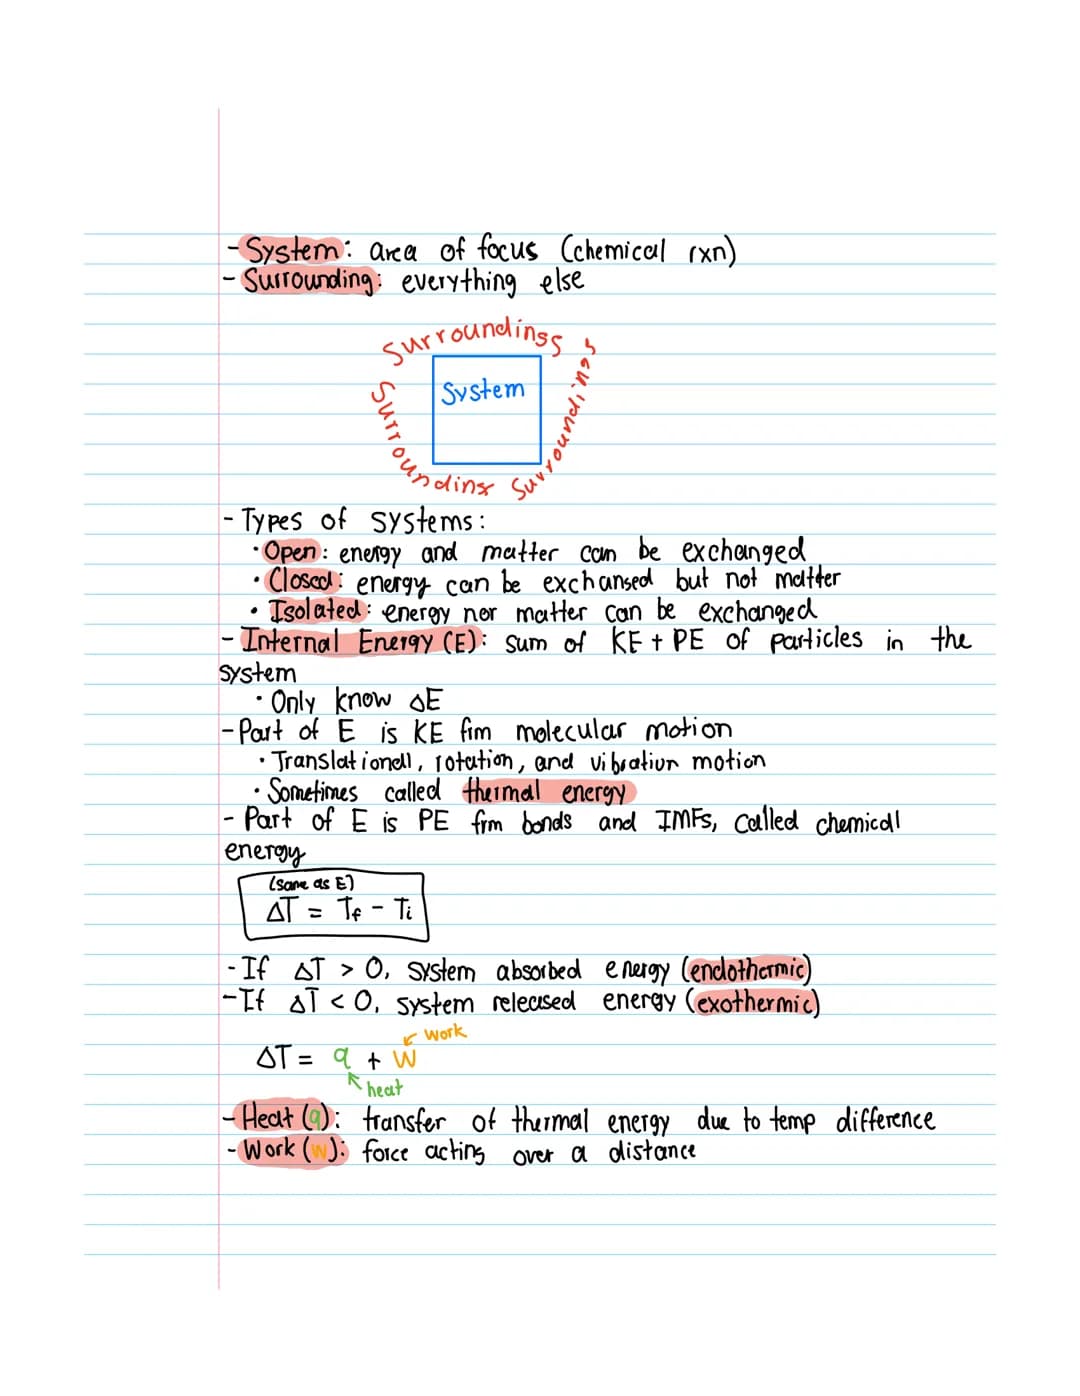 - System: area of focus (chemical rxn)
- Surrounding: everything else
Surroundings
Surroundings
System
Surroundins
Surroundings
- Types of systems:
• Open: energy and matter can be exchanged
• Closed: energy can be exchansed but not matter
• Isolated: energy nor matter can be exchanged
- Internal Energy (E): sum of KE + PE of particles in the
system
• Only know ΔE
- Part of E is KE frm molecular motion
• Translationall, rotation, and vibration motion
• Sometimes called thermal energy
- Part of E is PE frm bonds and IMFs, called chemical
energy
(same as E)
ΔT = Tf - Ti
- If ΔT > 0, system absorbed energy (endothermic)
- If ΔT < 0, system released energy (exothermic)
work
ΔT = q + W
heat
- Heat (q): transfer of thermal energy due to temp difference
- Work (w): force acting over a distance